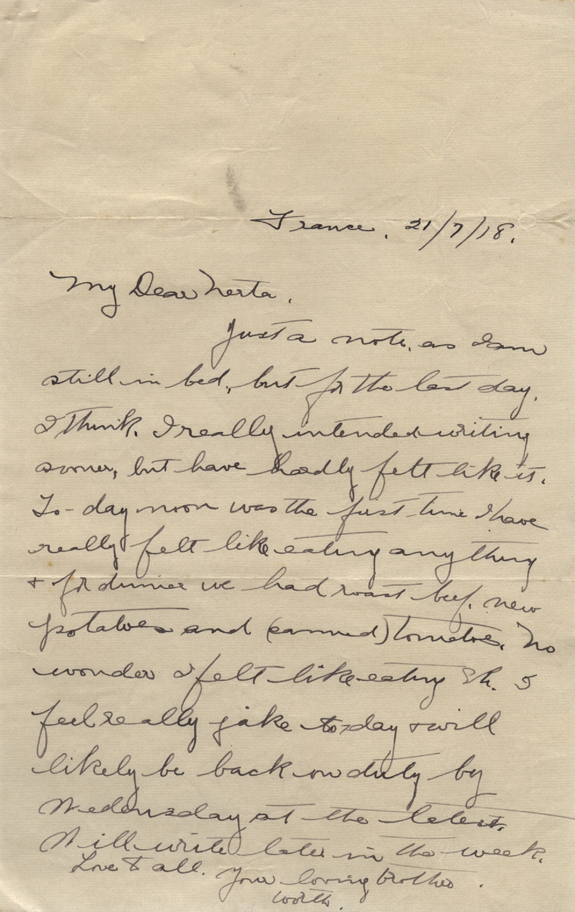 France. 21/7/18.
My Dear Nerta.
Just a note, as I am
still in bed, but for the last day.
I think. I really intended writing
sooner, but have hardly felt like it.
To-day noon was the first time I have
really felt like eating anything
& for dinner we had roast beef, new
potatoes and (canned) tomatoes. No
wonder I felt like eating Eh. I
feel really jake to-day & will
likely be back on duty by
Wedensday at the latest.
Will write later in the week.
Love to all. Your loving brother.
Worth.